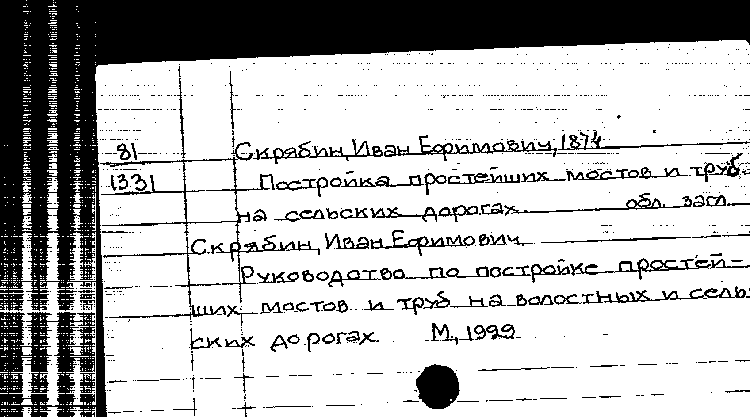 81 Скрябин, Иван Ефимович, 1874
1331 Постройка простейших мостов и труб
на сельских дорогах обл. загл.
Скрябин, Иван Ефимович
Руководство по постройке простей-
ших мостов и труб на волостных и сель-
ских дорогах М., 1929